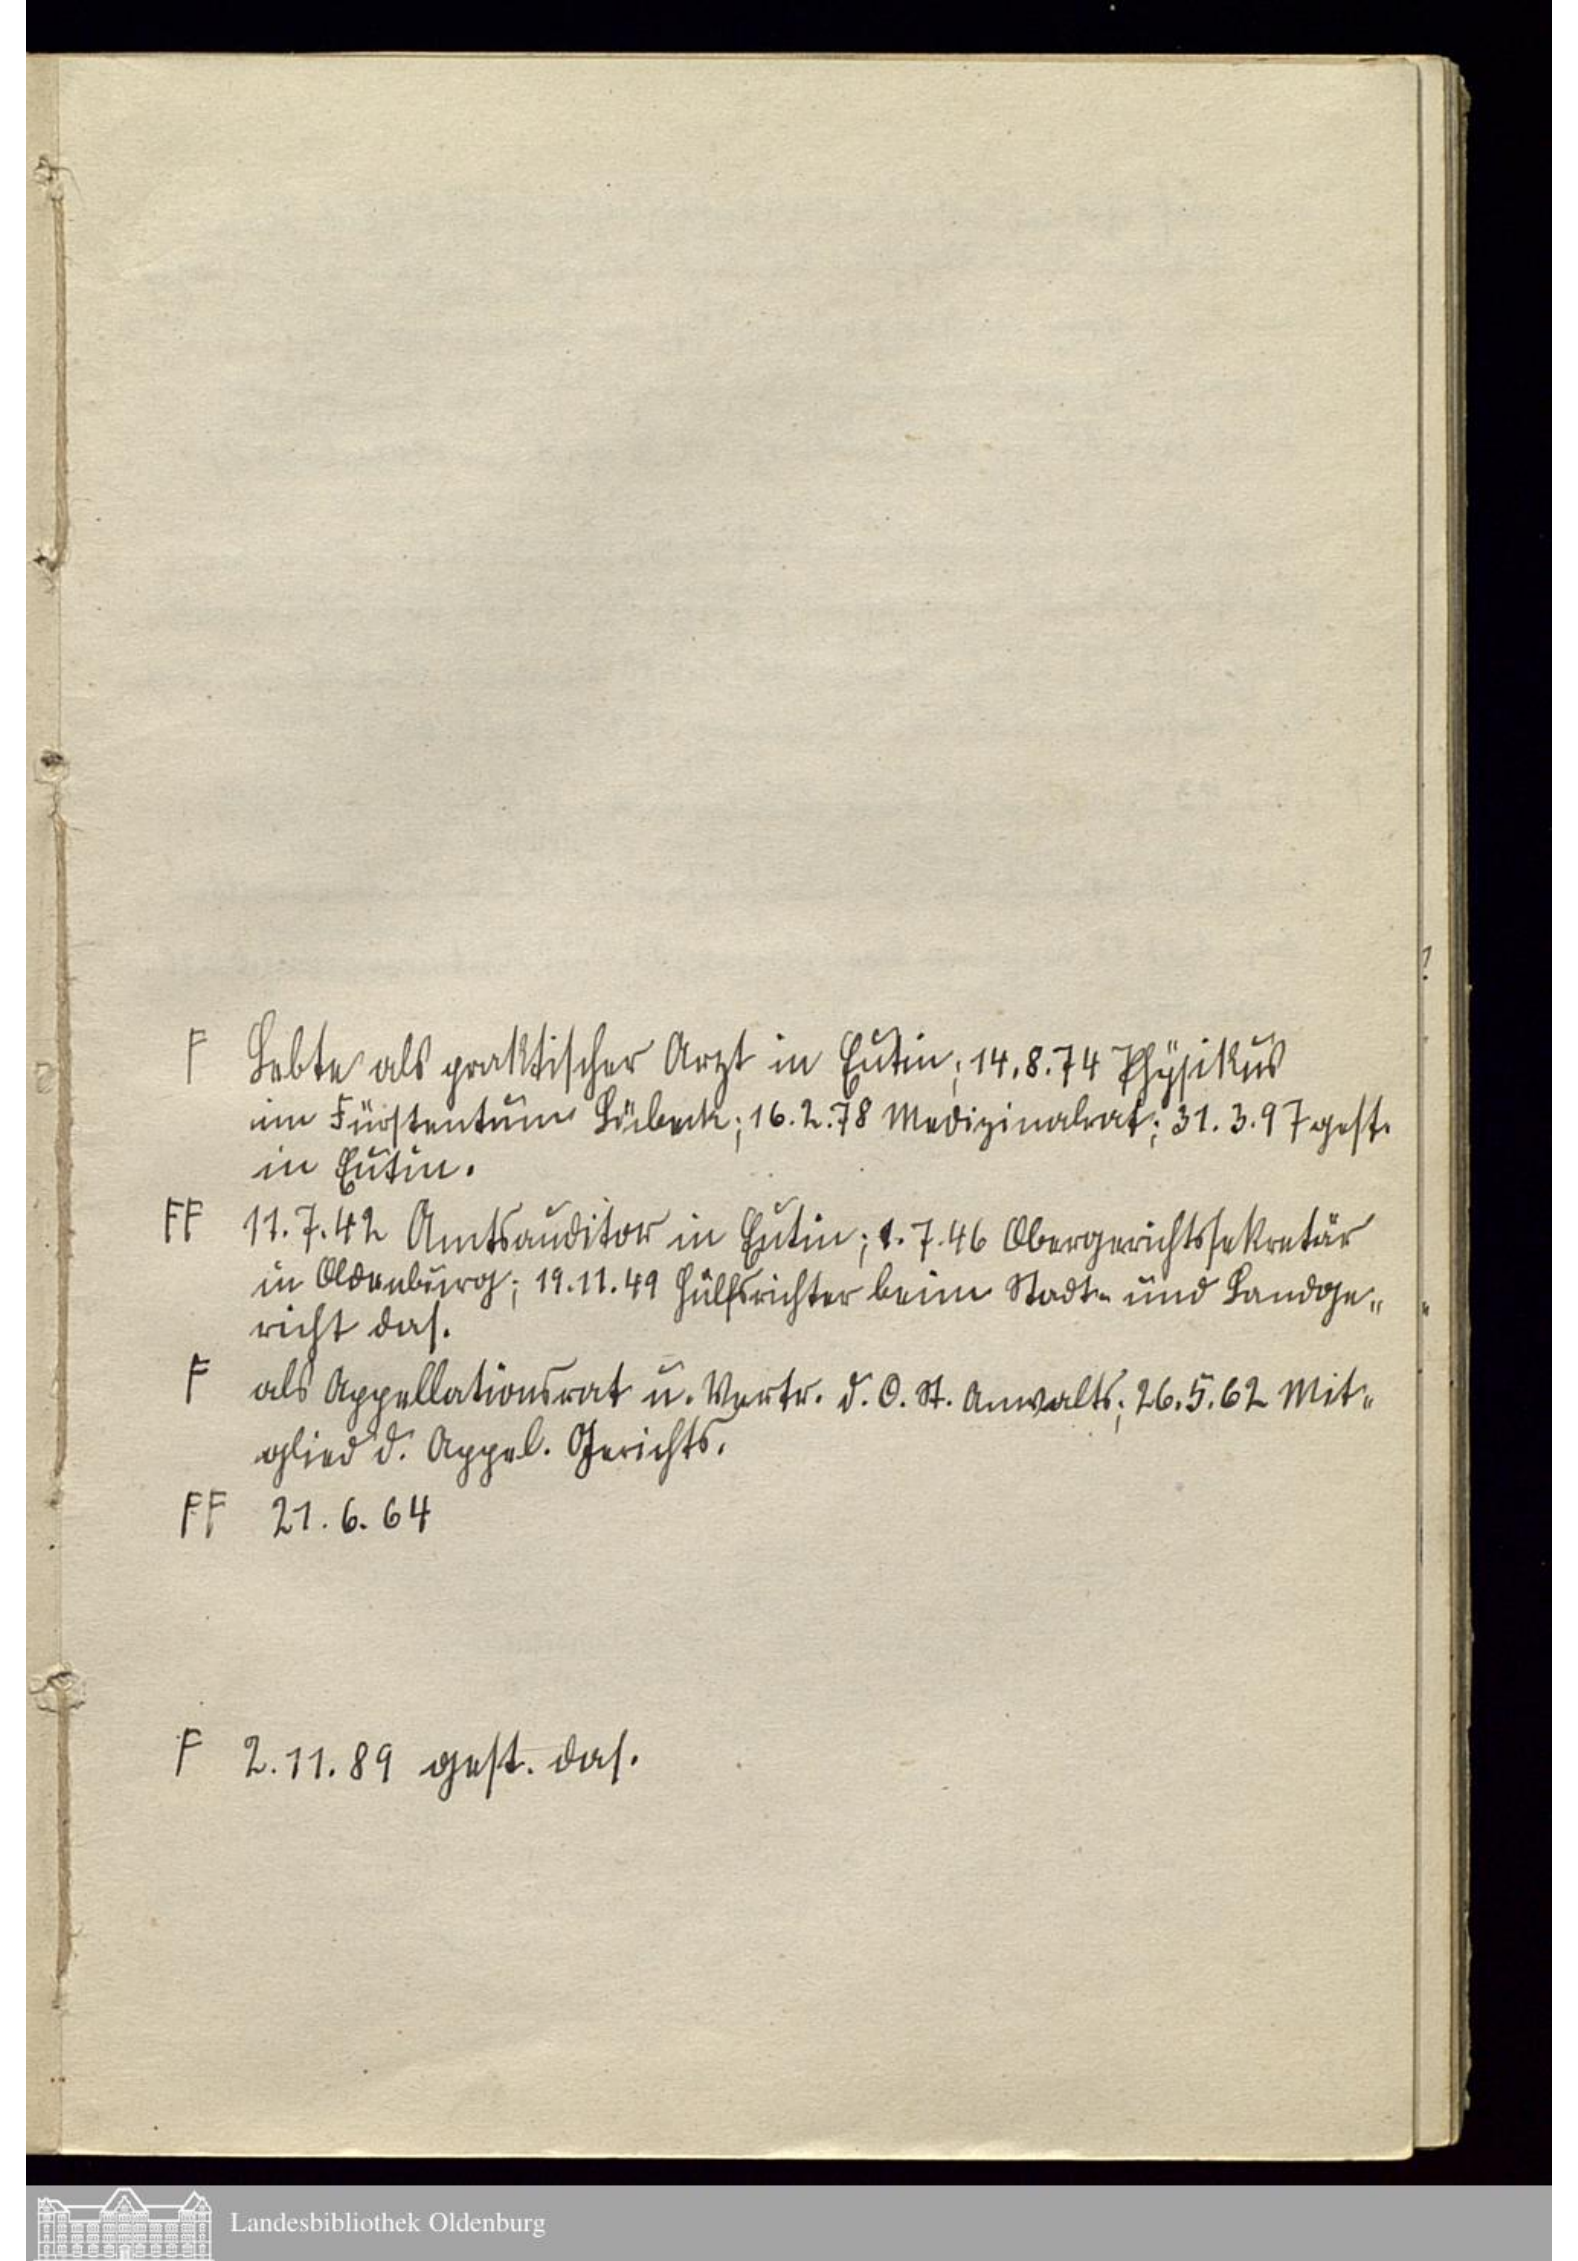 F Lebte als praktischer Arzt in Eutin; 14.8.74 Physikus
im Fürstentum Lübeck; 16.2.78 Medizinalrat; 31.3.97 gest.
in Eutin.
FF 11.7.42 Amtsauditor in Eutin; 1.7.46 Obergerichtssekretär
in Oldenburg; 19.11.49 Hülfsrichter beim Stadt- und Landge„
richt das.
F als Appellationsrat u. Vertr. d. O. St. Anwalts; 26.5.62 Mit„
glied d. Appel. Gerichts.
FF 21.6.64
F 2.11.89 gest. das.
Landesbibliothek Oldenburg